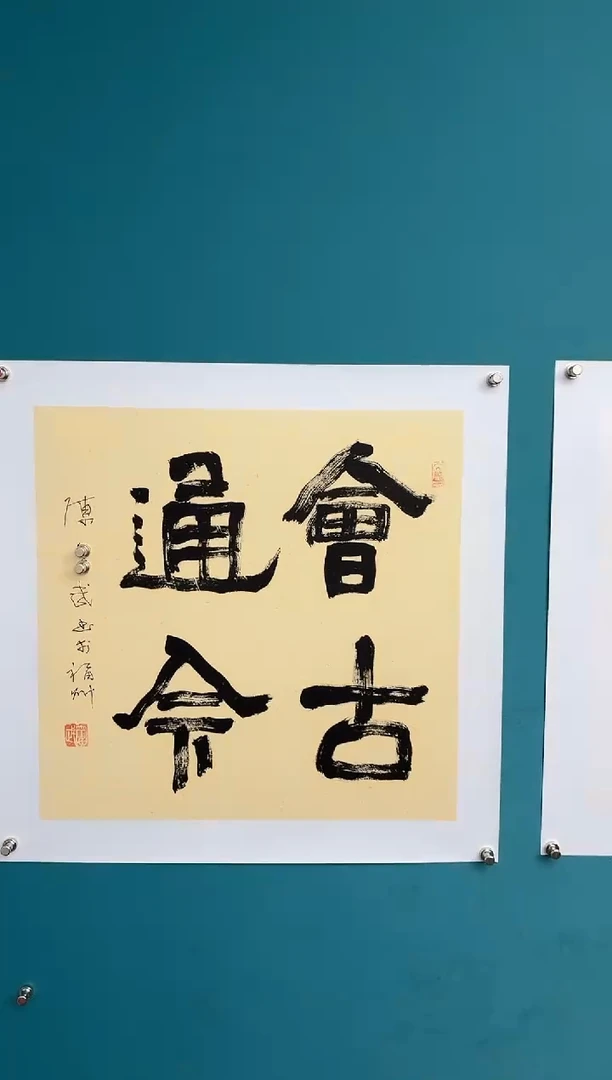 會古
通今
陳
武書於福州